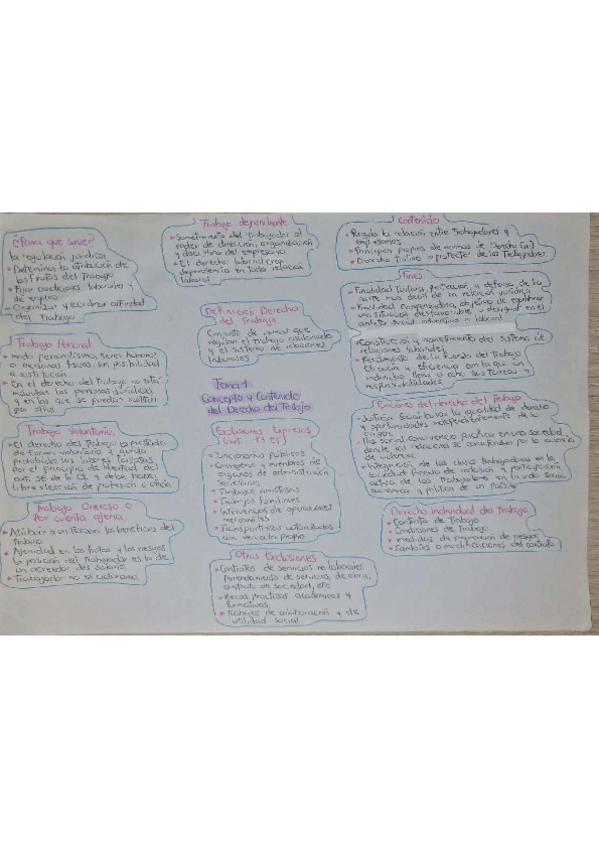 ¿Para que sirve?
la regulación jurídica
• Determina la atribución de
los frutos del Trabajo
• Fijar condiciones laborales y
de empleo
• Organizar y
del Trabajo
Trabajo Personal
• modo personalísimo, seres humanos
o personas físicas, sin posibilidad
de sustitución
• En el derecho del Trabajo no están
incluidas las personas jurídicas
y en las que se puedan sustituir
por otras
Trabajo Voluntario
• El derecho del Trabajo
de forma voluntaria y queda
prohibido las labores forzosas
por el principio de libertad del
art. 35 de la CE y debe haber
libre elección de profesión u oficio
Trabajo Oneroso o
Por cuenta ajena
• Atribuir a un Tercero los beneficios del
Trabajo
• Ajenidad en los frutos y los riesgos,
la posición del Trabajador es la de
un acreedor del salario
• Trabajador no es
Trabajo dependiente
• Sometimiento del Trabajador al
poder de dirección, organización
y disciplina del empresario
• El derecho laboral
dependencia en toda relación
laboral
Definición Derecho
del Trabajo
Conjunto de normas que
regulan el trabajo
y el sistema de relaciones
laborales
Tema 1
Concepto y Contenido
del Derecho del Trabajo
Exclusiones Expresas
• Funcionarios públicos
• Consejeros y miembros de
órganos de administración
• Trabajos amistosos
• Trabajos familiares
• Intervención de operaciones
mercantiles
• Transportistas
con vehículo propio
Otras Exclusiones
• Contratos de servicios no laborales
Arrendamiento de servicios, de obra,
contrato de sociedad, etc
• Becas, prácticas académicas y
formativas
• Trabajos de colaboración y de
utilidad social
Contenido
• Regula la relación entre Trabajadores y
empresarios
• Principios propios de normas de Derecho Civil
• Derecho tuitivo o protector de los Trabajadores
Fines
• Finalidad tuitiva, protección y defensa de la
parte más débil de la relación jurídica
• Finalidad compensadora, objetivo de equilibrar
una situación desfavorable o desigual en el
ámbito social, educativo o laboral
• Construcción y mantenimiento del sistema de
relaciones laborales
• Rendimiento de la fuerza del Trabajo
Eficacia y eficiencia con la que un
individuo lleva a cabo sus Tareas y
responsabilidades
Funciones del derecho del Trabajo
• Justicia Social busca la igualdad de derecho
y oportunidades independientemente de su
origen
• Paz social, convivencia pacífica en una sociedad
donde las relaciones se caracterizan por la ausencia
de violencia
• Integración de las clases trabajadoras en la
sociedad, proceso de inclusión y participación
activa de los Trabajadores en la vida social,
económica y política de un país
Derecho individual del Trabajo
• Contrato de Trabajo
• Condiciones de Trabajo
• medidas de prevención de riesgos
• Cambios o modificaciones del contrato